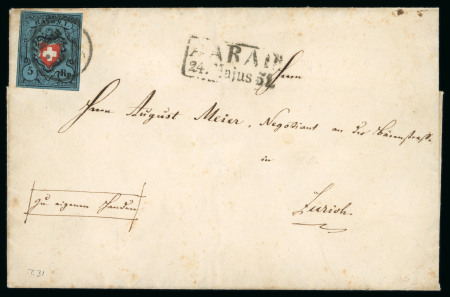 RAYON I.
5 Rp.
ARAD
24. Majus 52
Herrn
Herrn August Meier, Negotiant an der
in
Zurich.
zu eigenen Handen